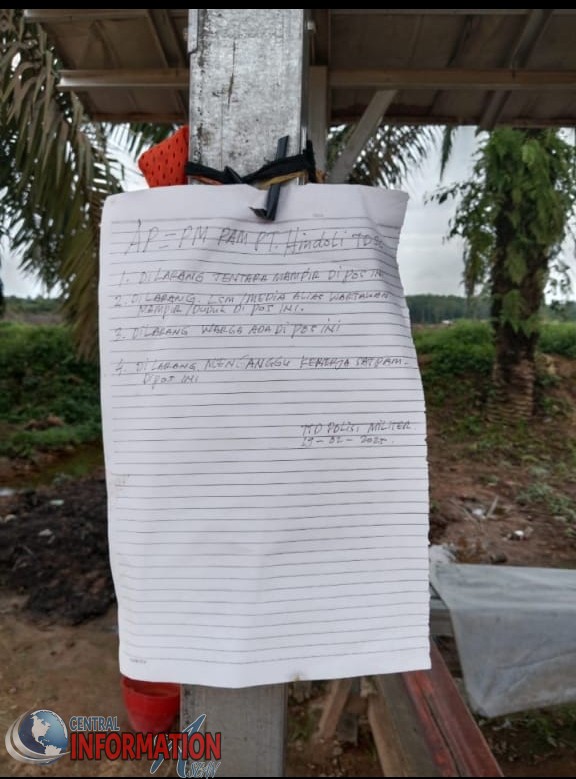 AP = PM PAM PT. Hindoli
1. DILARANG TENTARA MAMPIR DI POS INI
2. DILARANG. LSM/MEDIA ALIAS WARTAWAN
MAMPIR/DUDUK DI POS INI.
3. DILARANG WARGA ADA DI POS INI
4. DILARANG MENGANGGU KERERJA SATPAM.
DI POS INI
TTD POLISI MILITER
19-02-2025.
CENTRAL
INFORMATION